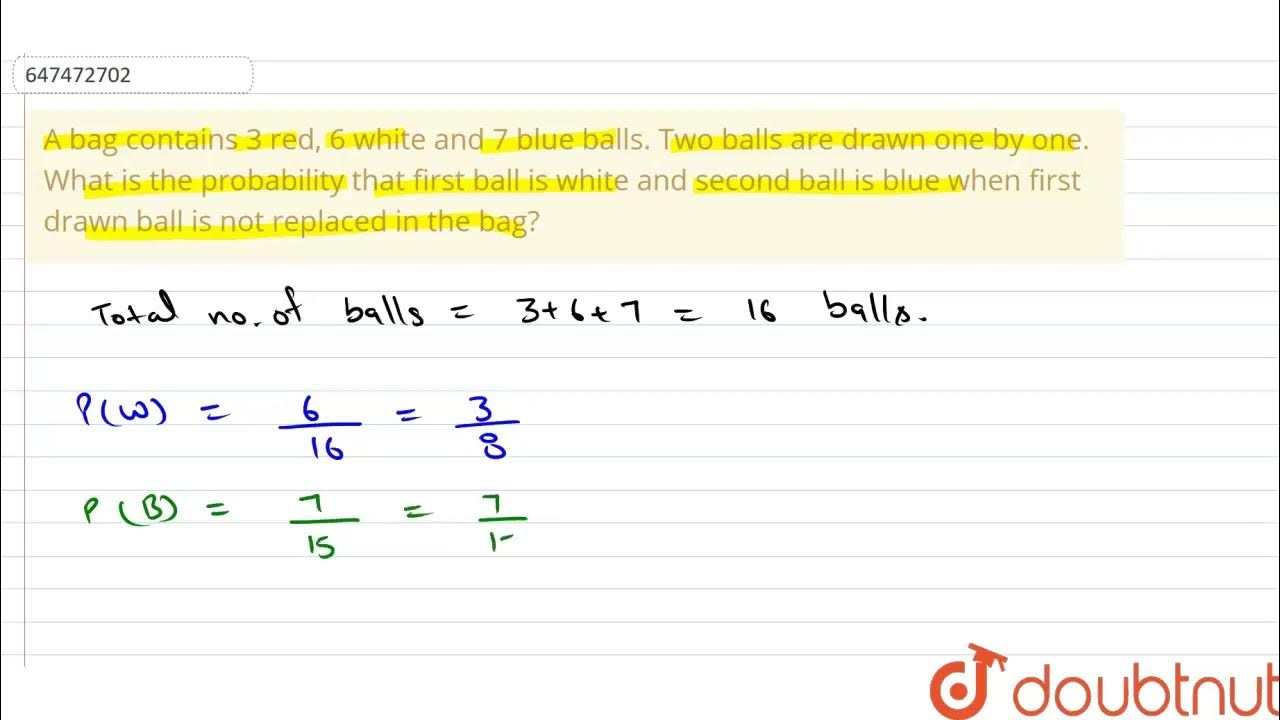 647472702
A bag contains 3 red, 6 white and 7 blue balls. Two balls are drawn one by one.
What is the probability that first ball is white and second ball is blue when first
drawn ball is not replaced in the bag?
Total no. of balls = 3+6+7 = 16 balls.
P(W) = 6/16 = 3/8
P(B) = 7/15 = 7/1
doubtnut